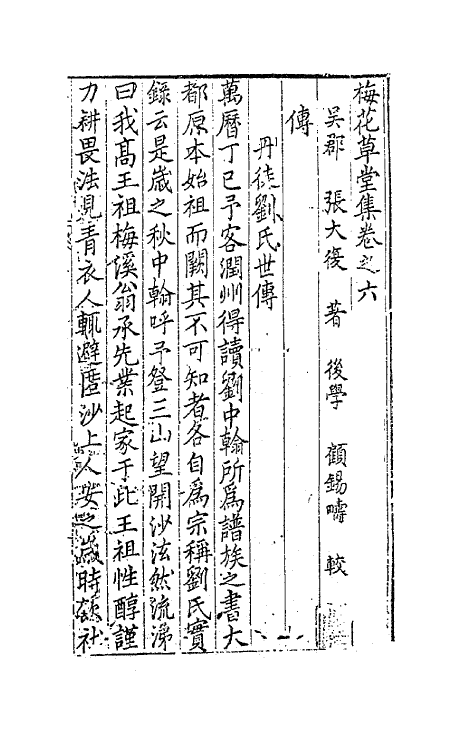 梅花草堂集卷之六
吳郡 張大復 著 後學 顧錫疇 較
傳
丹徒劉氏世傳
萬曆丁巳予客潤州得讀劉中翰所爲譜族之書大
都原本始祖而闕其不可知者各自爲宗稱劉氏實
錄云是歲之秋中翰呼予登三山望開沙泫然流涕
曰我高王祖梅溪翁承先業起家于此王祖性醇謹
力耕畏法見青衣人輒避匿沙上人安之歲時社